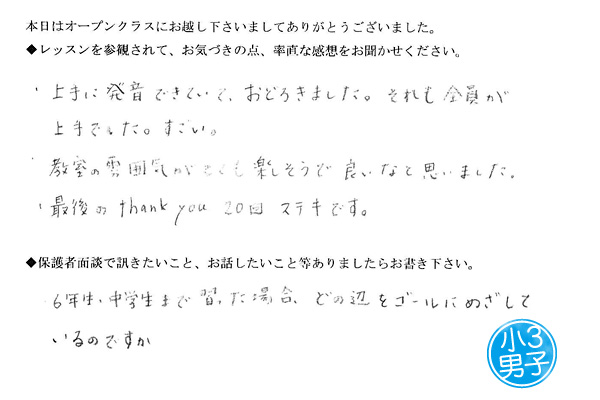 本日はオープンクラスにお越し下さいましてありがとうございました。
◆レッスンを参観されて、お気づきの点、率直な感想をお聞かせください。
・上手に発音できていて、おどろきました。それも全員が
上手でした。すごい。
・教室の雰囲気がとても楽しそうで良いなと思いました。
・最後の thank you 20回 ステキです。
◆保護者面談で訊きたいこと、お話したいこと等ありましたらお書き下さい。
・6年生、中学生まで習った場合、どの辺をゴールにめざして
いるのですか
小3
男子